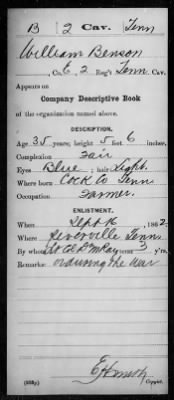 B 2 Cav. Tenn
William Benson
, Co. E, 2 Reg't Tenn. Cav.
Appears on
Company Descriptive Book
of the organization named above.
DESCRIPTION.
Age 35 years; height 5 feet 6 inches.
Complexion Fair
Eyes Blue; hair Light.
Where born Cock Co Tenn
Occupation Farmer.
ENLISTMENT.
When Sept 16, 1862.
Where Severville Tenn.
By whom term 3 y'rs.
Remarks: or during the War
Copyist.